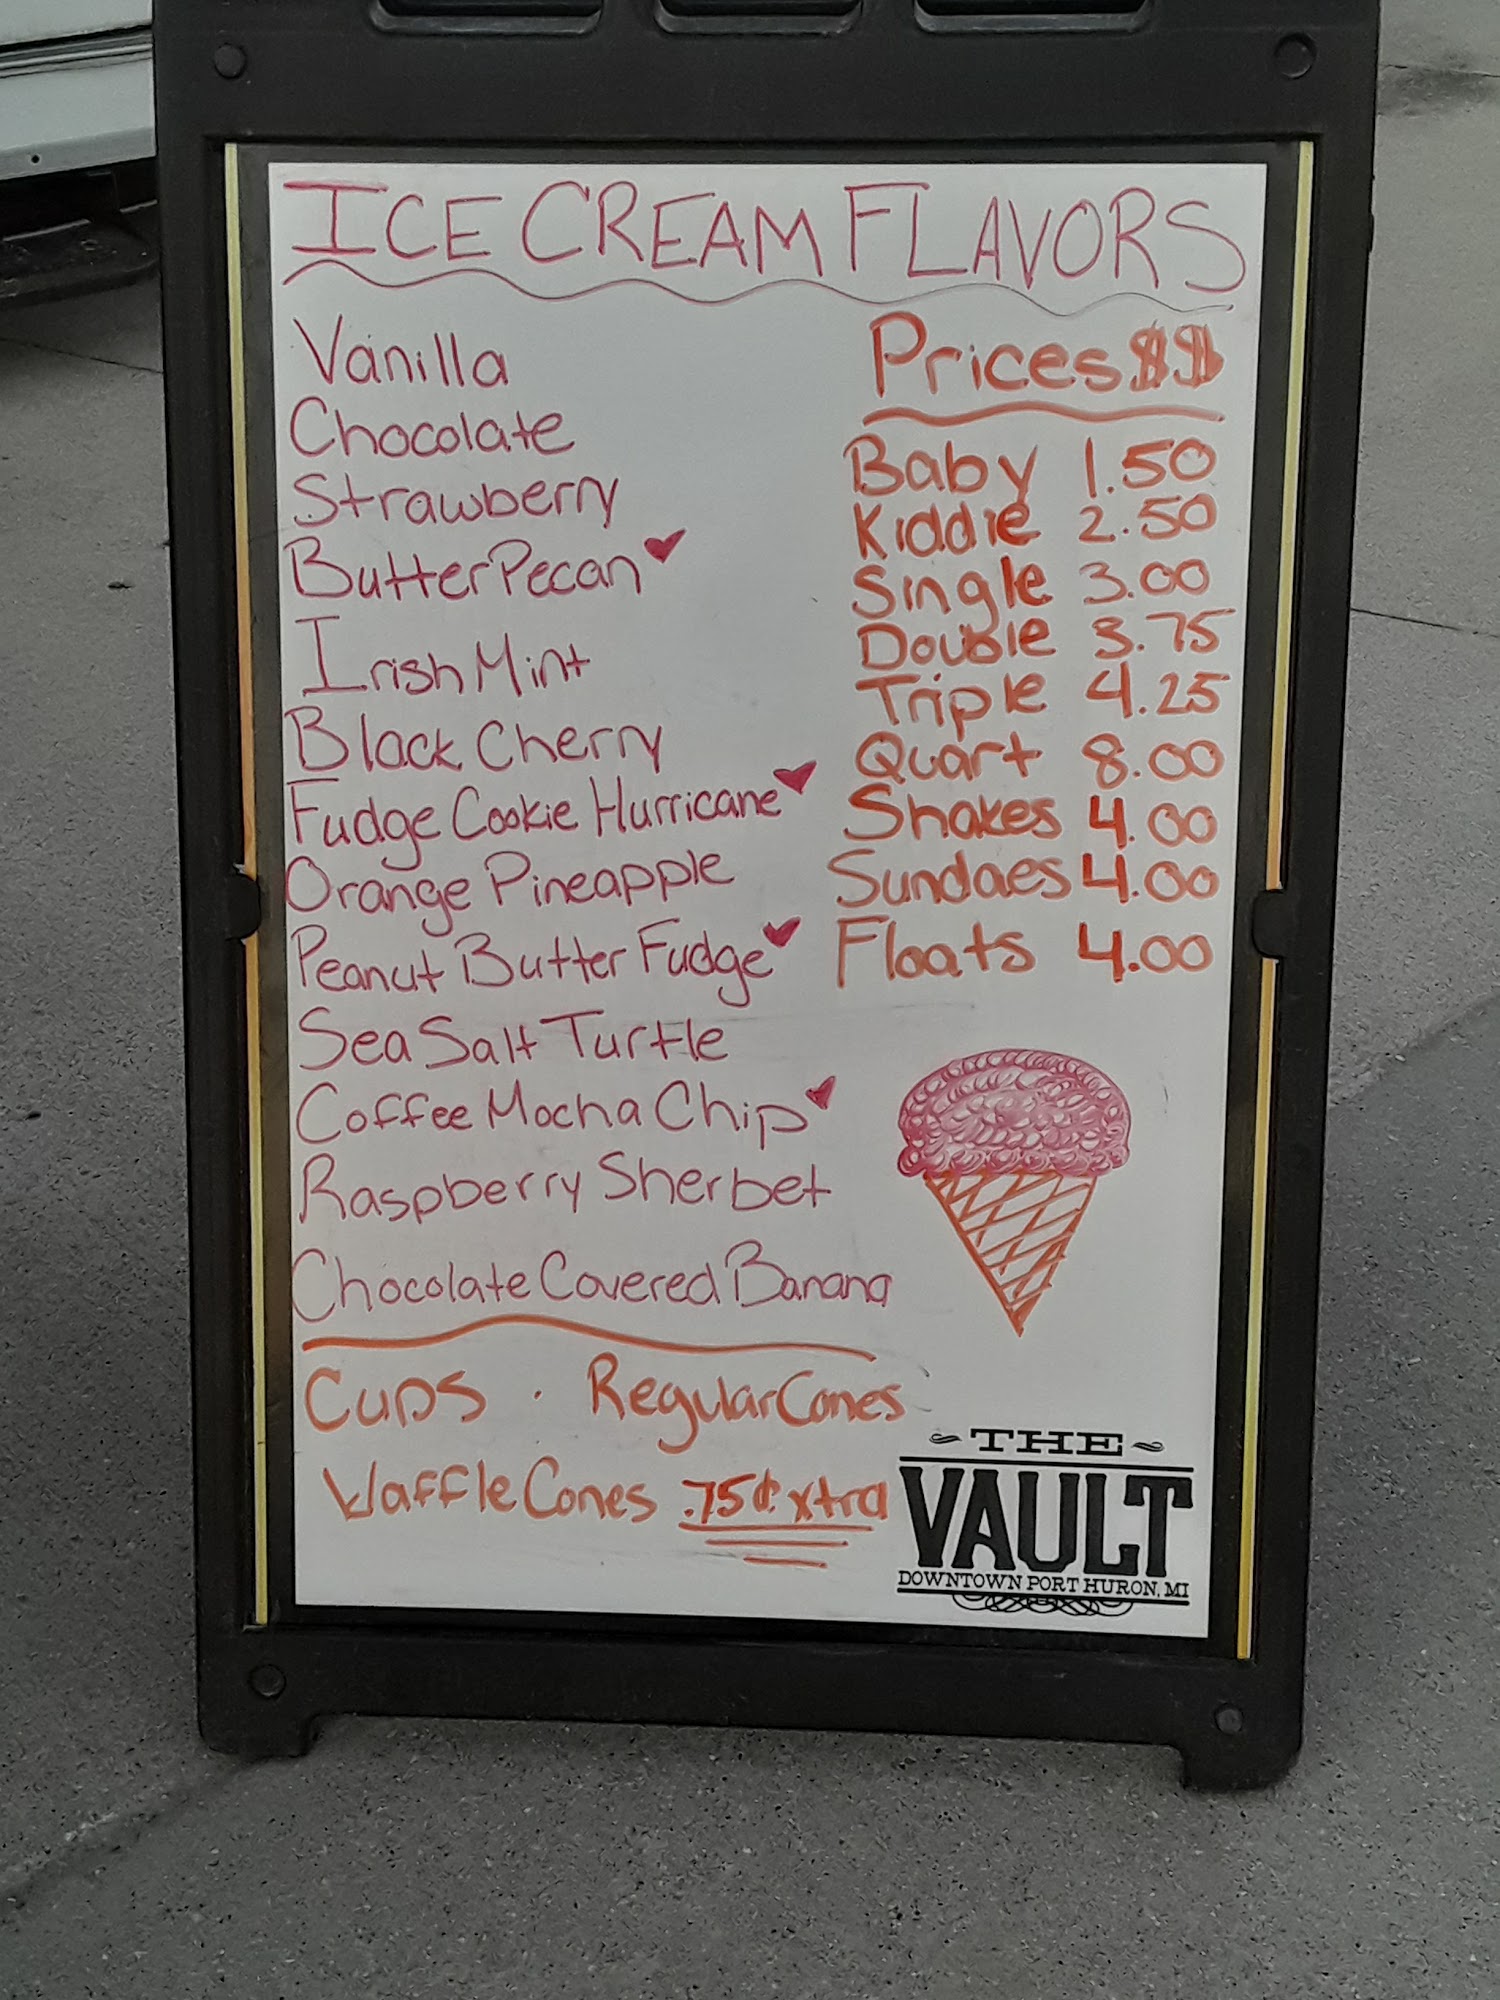 ICE CREAM FLAVORS
Vanilla
Chocolate
Strawberry
Butter Pecan
Irish Mint
Black Cherry
Fudge Cookie Hurricane
Orange Pineapple
Peanut Butter Fudge
Sea Salt Turtle
Coffee Mocha Chip
Raspberry Sherbet
Chocolate Covered Banana
Prices $$
Baby 1.50
Kiddie 2.50
Single 3.00
Double 3.75
Triple 4.25
Quart 8.00
Shakes 4.00
Sundaes 4.00
Floats 4.00
Cups · Regular Cones
Waffle Cones .75¢ xtra
THE
VAULT
DOWNTOWN PORT HURON, MI